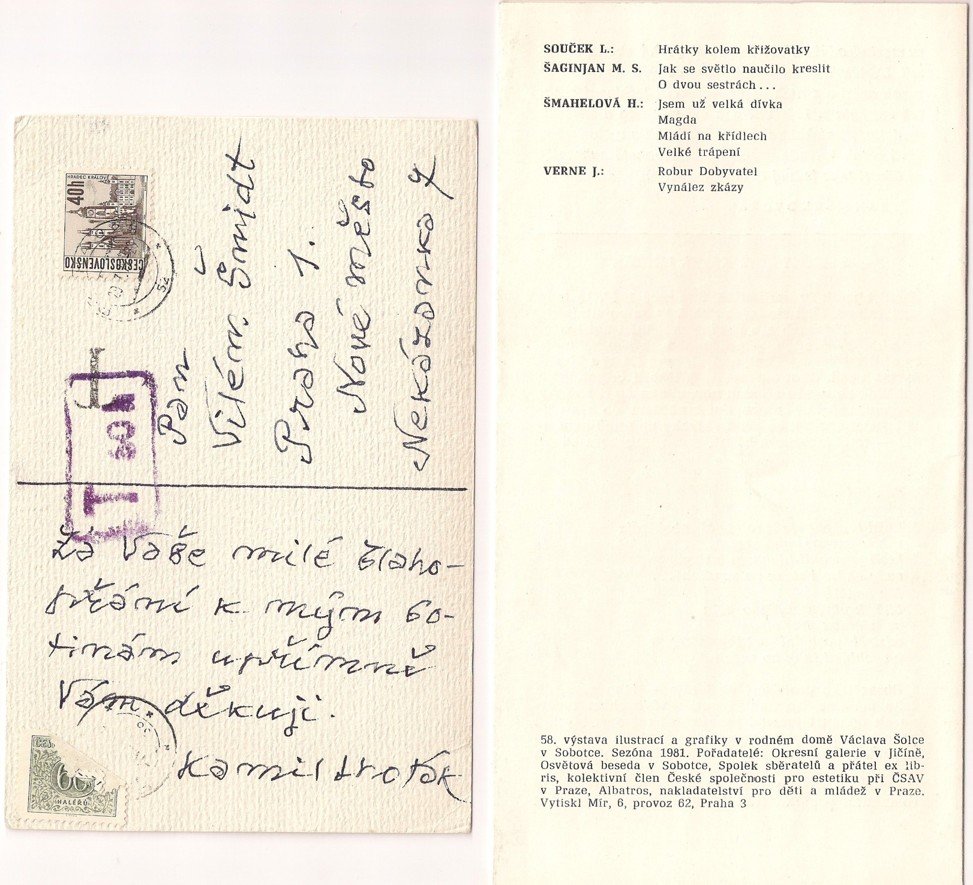 HRADEC KRÁLOVÉ
40h
ČESKOSLOVENSKO
T
Pan
Vilém Šmidt
Praha 1.
Nové město
Nekázanka 7
Za Vaše milé blaho-
přání k mým 60-
tinám upřímně
Vám děkuji.
Kamil Lhoták
60
HALÉŘŮ
SOUČEK L.: Hrátky kolem křižovatky
ŠAGINJAN M. S. Jak se světlo naučilo kreslit
O dvou sestrách...
ŠMAHELOVÁ H.: Jsem už velká dívka
Magda
Mládí na křídlech
Velké trápení
VERNE J.: Robur Dobyvatel
Vynález zkázy
58. výstava ilustrací a grafiky v rodném domě Václava Šolce
v Sobotce. Sezóna 1981. Pořadatelé: Okresní galerie v Jičíně,
Osvětová beseda v Sobotce, Spolek sběratelů a přátel ex lib-
ris, kolektivní člen České společnosti pro estetiku při ČSAV
v Praze, Albatros, nakladatelství pro děti a mládež v Praze.
Vytiskl Mír, 6, provoz 62, Praha 3